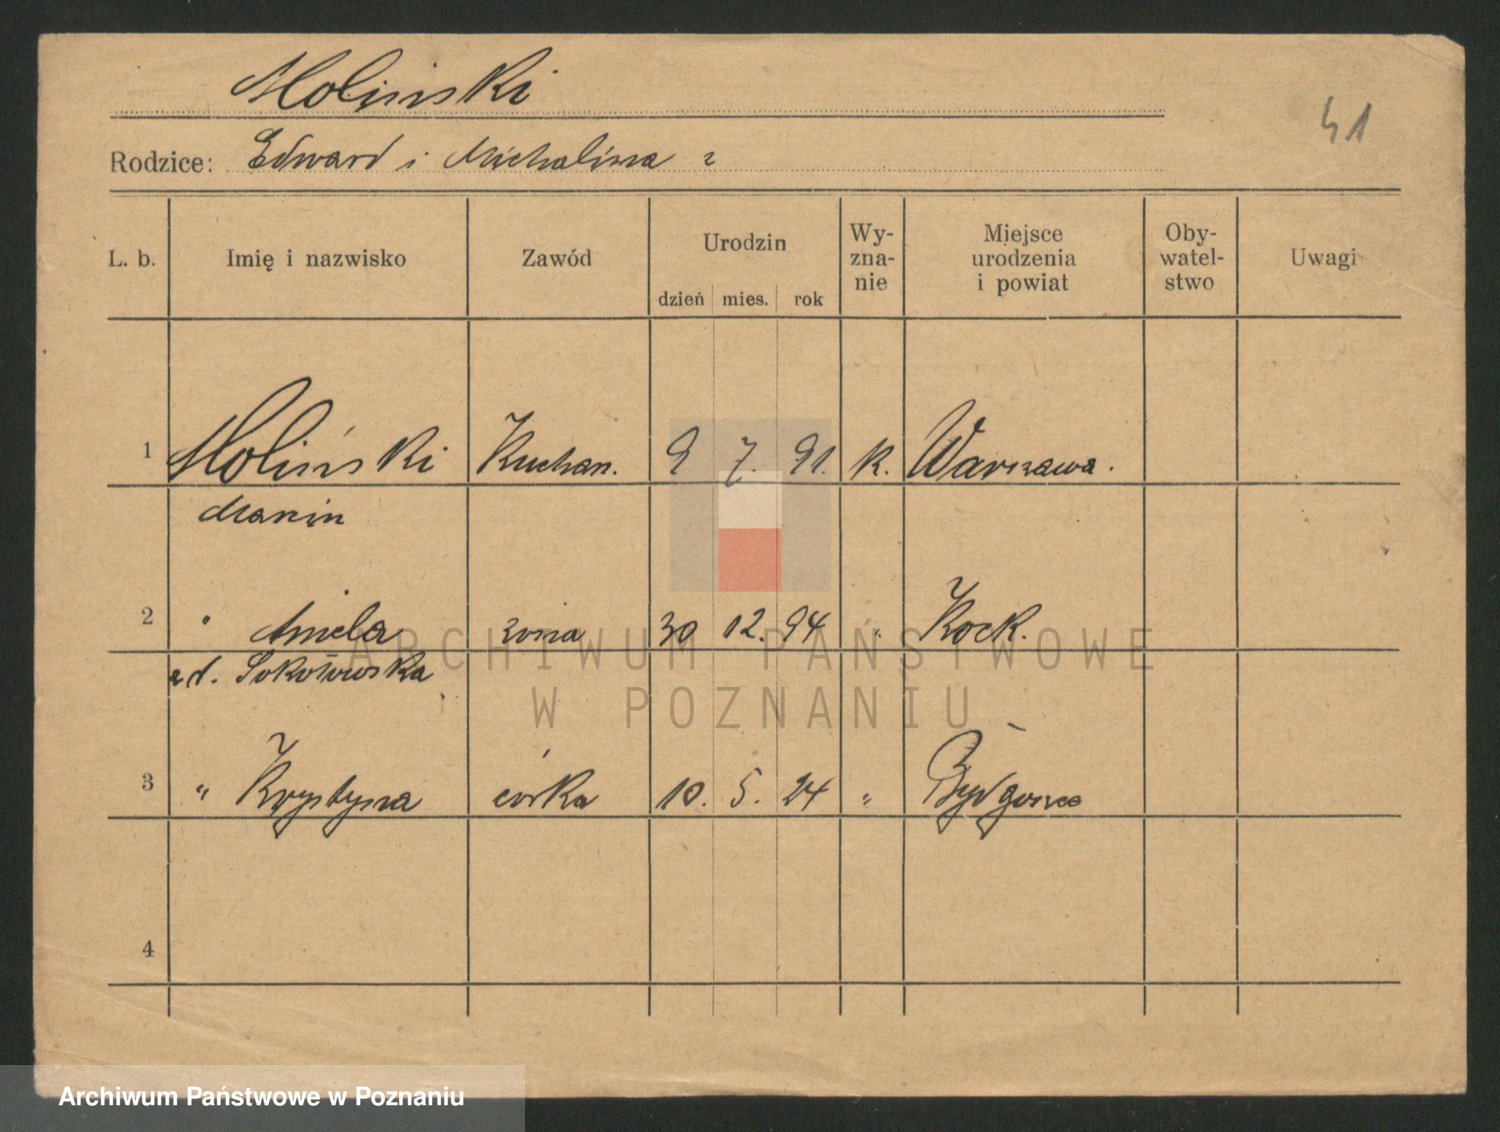 Moliński
41
Rodzice: Edward i Michalina
L. b. Imię i nazwisko Zawód Urodzin dzień mies. rok Wy-zna-nie Miejsce urodzenia i powiat Oby-watel-stwo Uwagi
1 Moliński Kuchar. 9 7. 91. k. Warszawa.
Marcin
2 " Aniela żona 30 12. 94 " Kock.
zd. Sokołowska
3 " Krystyna córka 10. 5. 24 " Bydgoszcz
4
ARCHIWUM PAŃSTWOWE
W POZNANIU
Archiwum Państwowe w Poznaniu